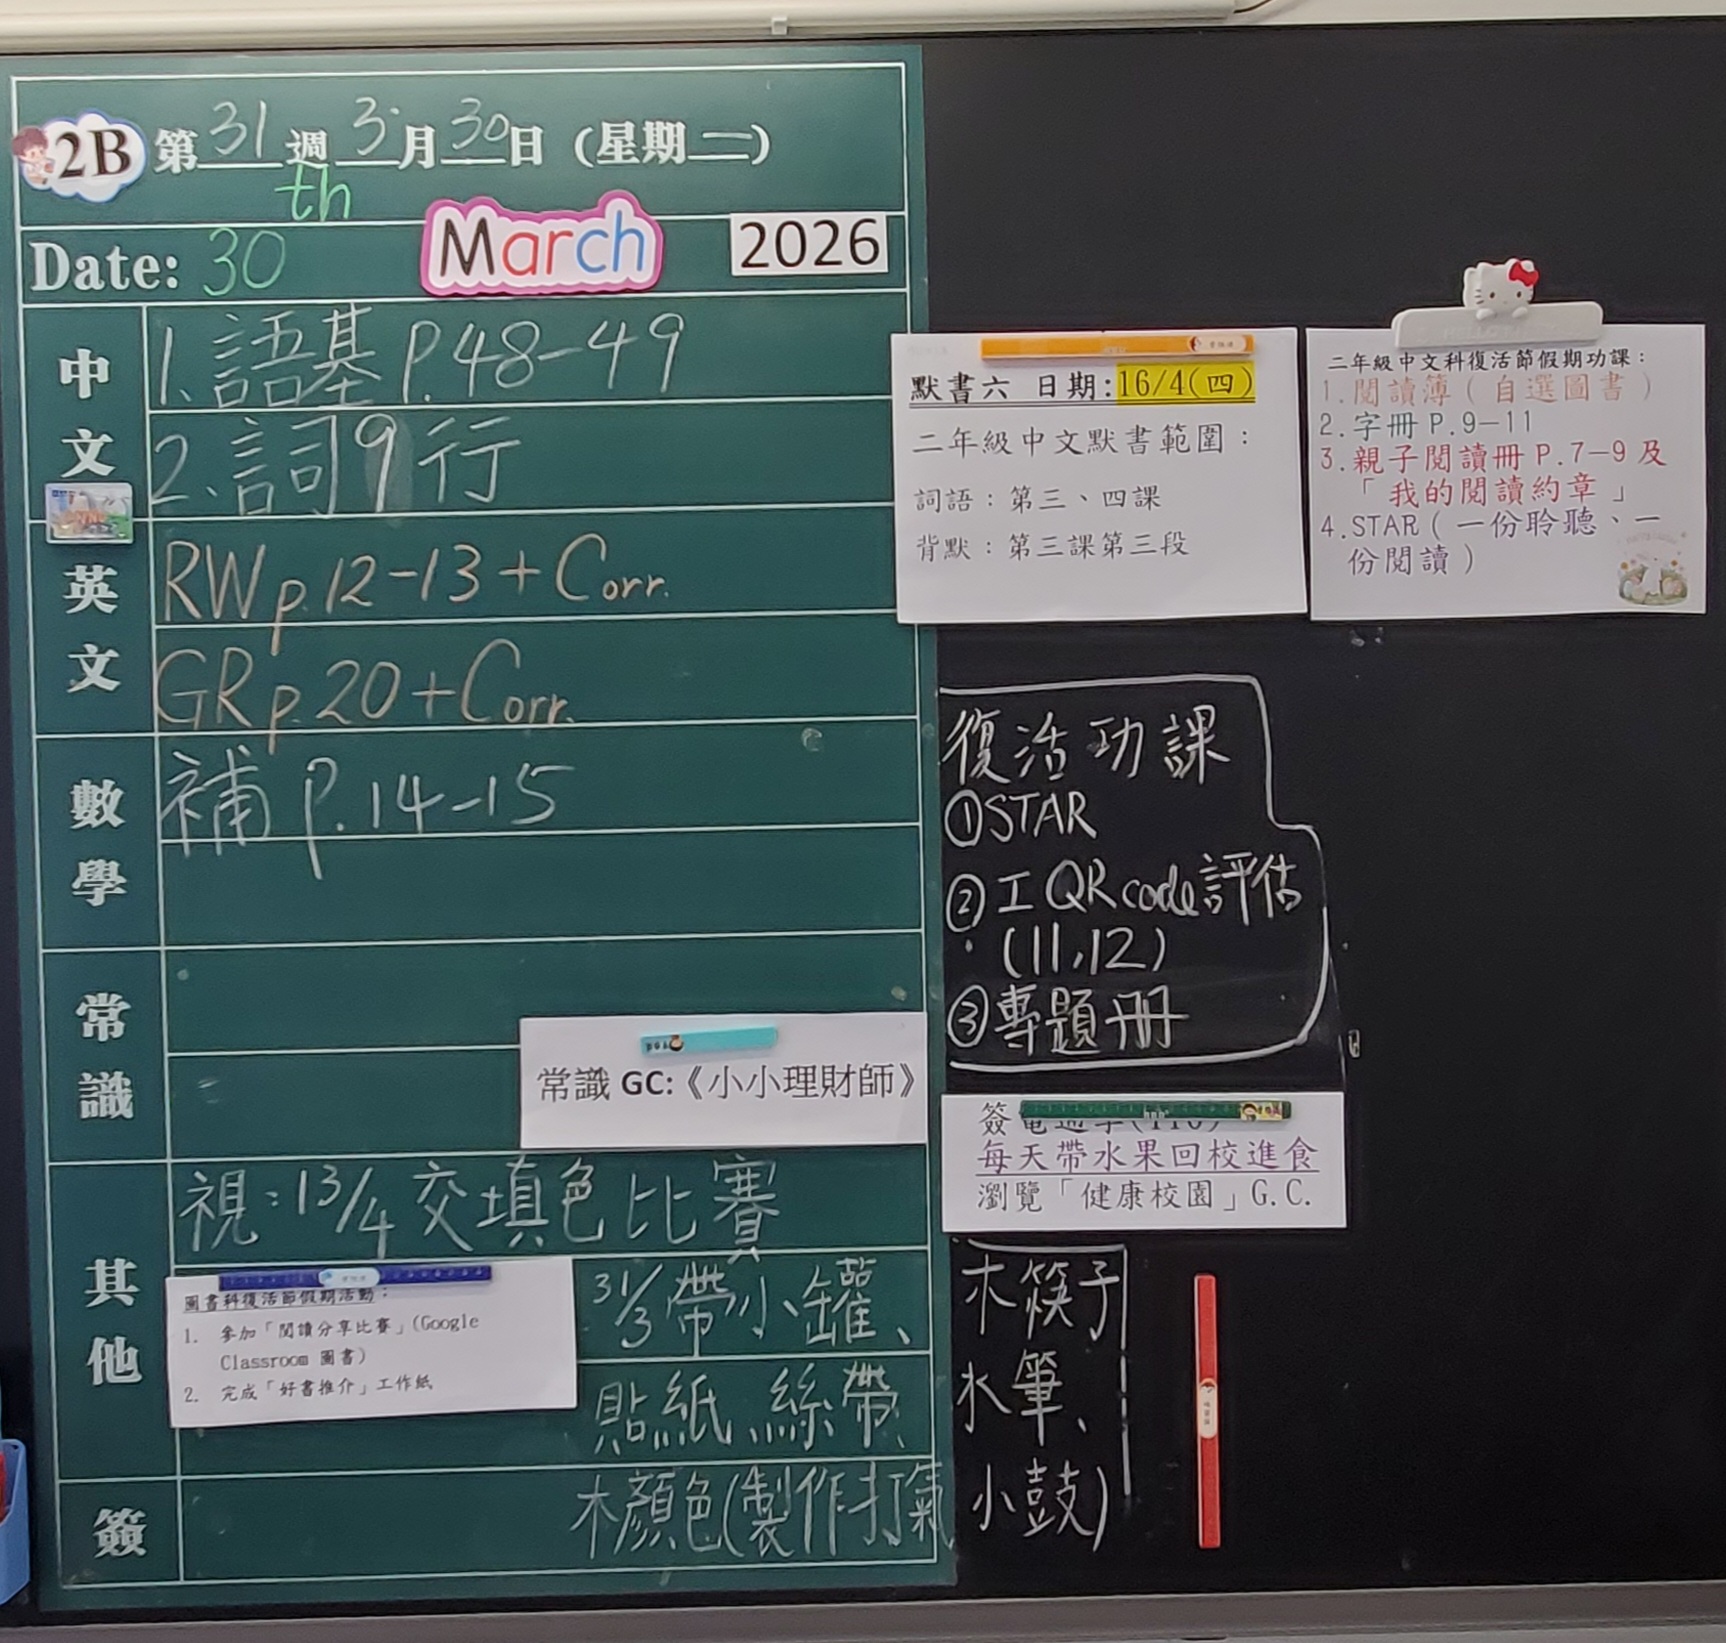 2B 第31週 3月30日 (星期一)
Date: 30th March 2026
中文
1. 語基 P.48-49
2. 詞9行
英文
RW p.12-13 + Corr.
GR p.20 + Corr.
數學
補 P.14-15
常識
常識 GC:《小小理財師》
其他
視:13/4 交填色比賽
圖書科復活節假期活動:
1. 參加「閱讀分享比賽」(Google
Classroom 圖書)
2. 完成「好書推介」工作紙
31/3 帶小罐、木筷子
貼紙、絲帶、水筆、
木顏色(製作打氣小鼓)
簽
默書六 日期:16/4(四)
二年級中文默書範圍:
詞語:第三、四課
背默:第三課第三段
二年級中文科復活節假期功課:
1.閱讀簿(自選圖書)
2.字冊 P.9-11
3.親子閱讀冊 P.7-9 及
「我的閱讀約章」
4.STAR(一份聆聽、一
份閱讀)
復活功課
①STAR
②工 QR code 評估
(11,12)
③專題冊
簽
每天帶水果回校進食
瀏覽「健康校園」G.C.